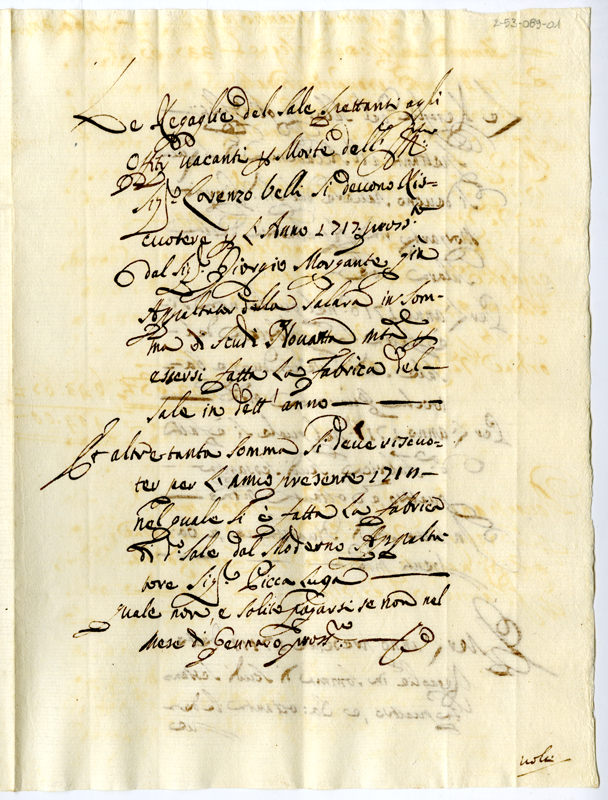 2-53-089-01
Le Regaglie del Sale Spettanti agli
Offitij vacanti p Morte dell'
Sig.r Lorenzo Belli Si devono Ris=
cuotere p L'Anno 1717 pross.o
dal Sig.r Giorgio Morgante già
Appaltator della Salara in Som=
ma di Scudi Novanta mta p
essersi fatta La Fabrica del
Sale in dett'anno
Et altre tanta Somma Si deve riscuo=
ter per L'anno presente 171
nel quale Si è fatta La Fabrica
di d.o Sale dal Moderno Appalta
tore Sig.r Picca Luga
quale non è solito pagarsi se non nel
Mese di Gennaro pross.o
volti